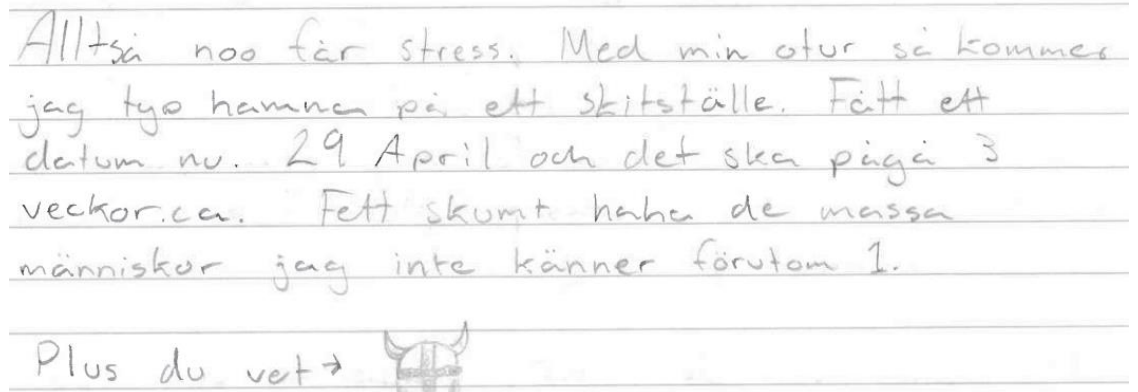 Alltså noo får stress. Med min otur så kommer
jag tyo hamna på ett skitställe. Fått ett
datum nu. 29 April och det ska pågå 3
veckor.ca. Fett skumt haha de massa
människor jag inte känner förutom 1.
Plus du vet→